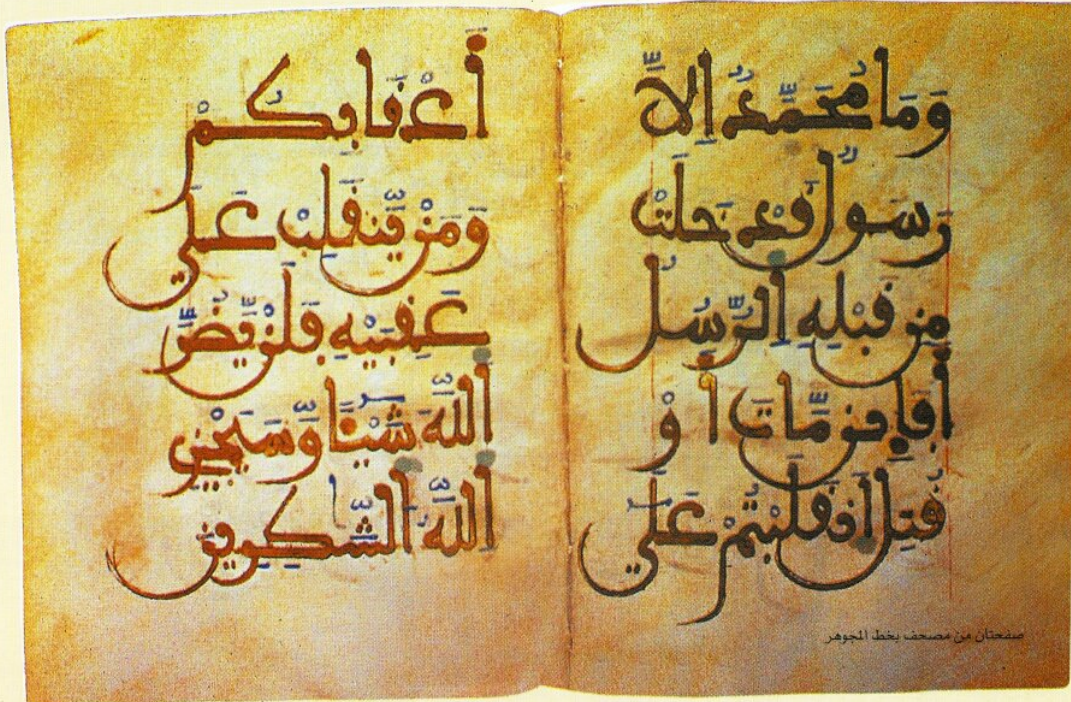 وَمَا مُحَمَّدٌ اِلَّا
رَسُولٌ قَدْ خَلَتْ
مِن قَبْلِهِ اِ۬لرُّسُلُ
أَفَإِيْن مَّاتَ أَوْ
قُتِلَ اَ۪نقَلَبْتُمْ عَلَىٰ
أَعْقَابِكُمْ
وَمَنْ يَّنقَلِبْ عَلَىٰ
عَقِبَيْهِ فَلَنْ يَّضُرَّ
اَ۬للَّهَ شَيْـًٔا وَّسَيَجْزِي
اِ۬للَّهُ اُ۬لشَّٰكِرِينَ
صفحتان من مصحف بخط المجوهر